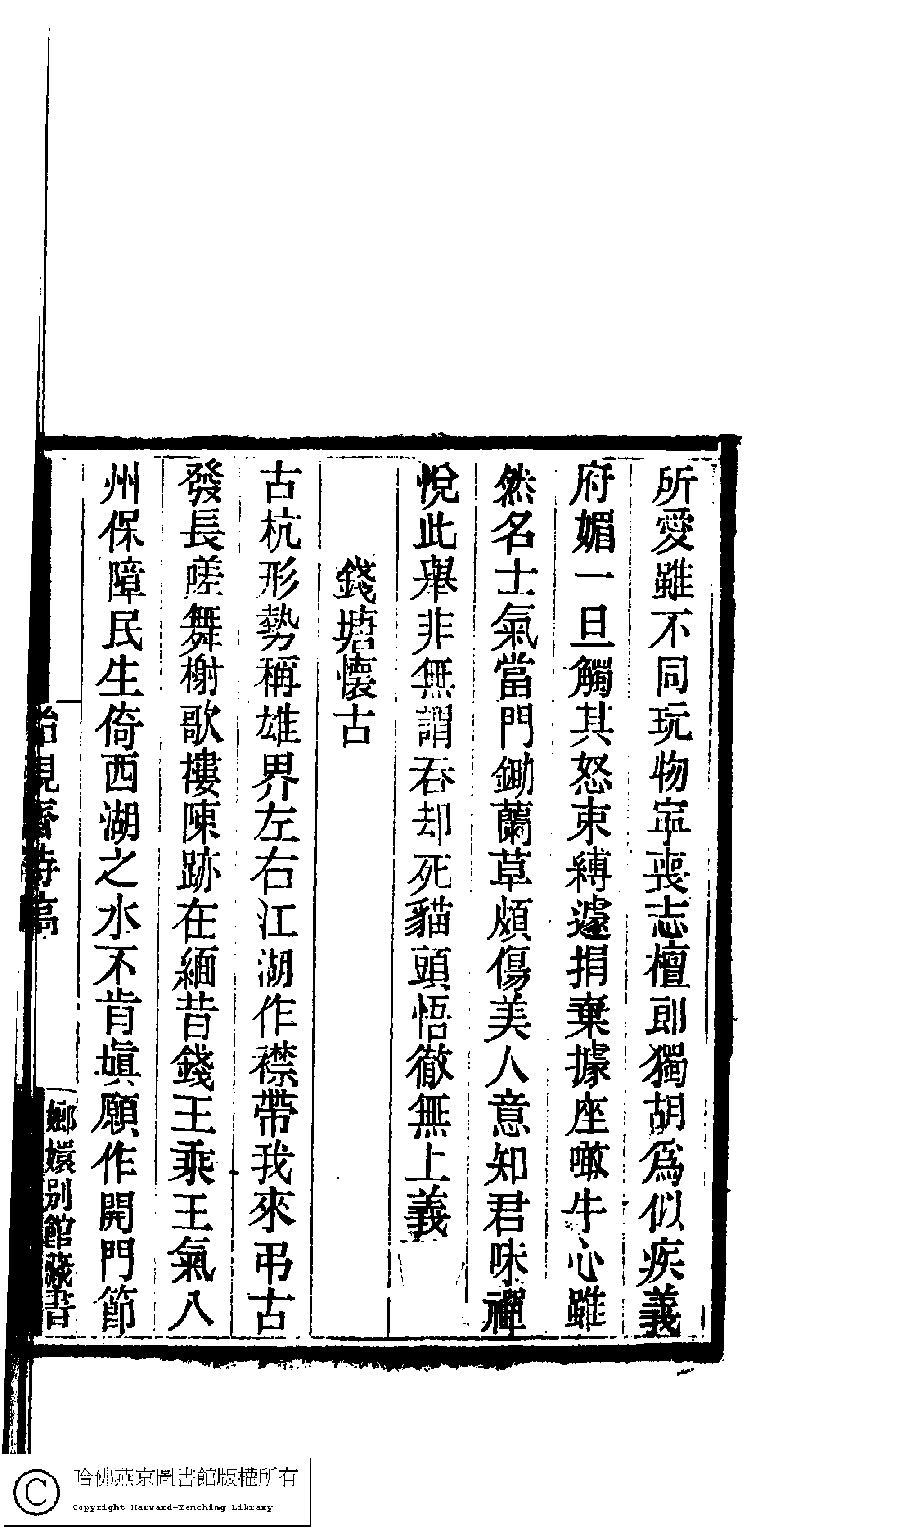 所愛雖不同玩物寧喪志檀郎獨胡爲似疾義
府媚一旦觸其怒束縛遽捐棄據座噉牛心雖
然名士氣當門鋤蘭草頗傷美人意知君味禪
悅此舉非無謂吞却死貓頭悟徹無上義
錢塘懷古
古杭形勢稱雄界左右江湖作襟帶我來弔古
發長嗟舞榭歌樓陳跡在緬昔錢王乘王氣八
州保障民生倚西湖之水不肯塡願作開門節
怡親齋詩稿
嫏嬛別館藏書
哈佛燕京圖書館版權所有
Copyright Harvard-Yenching Library